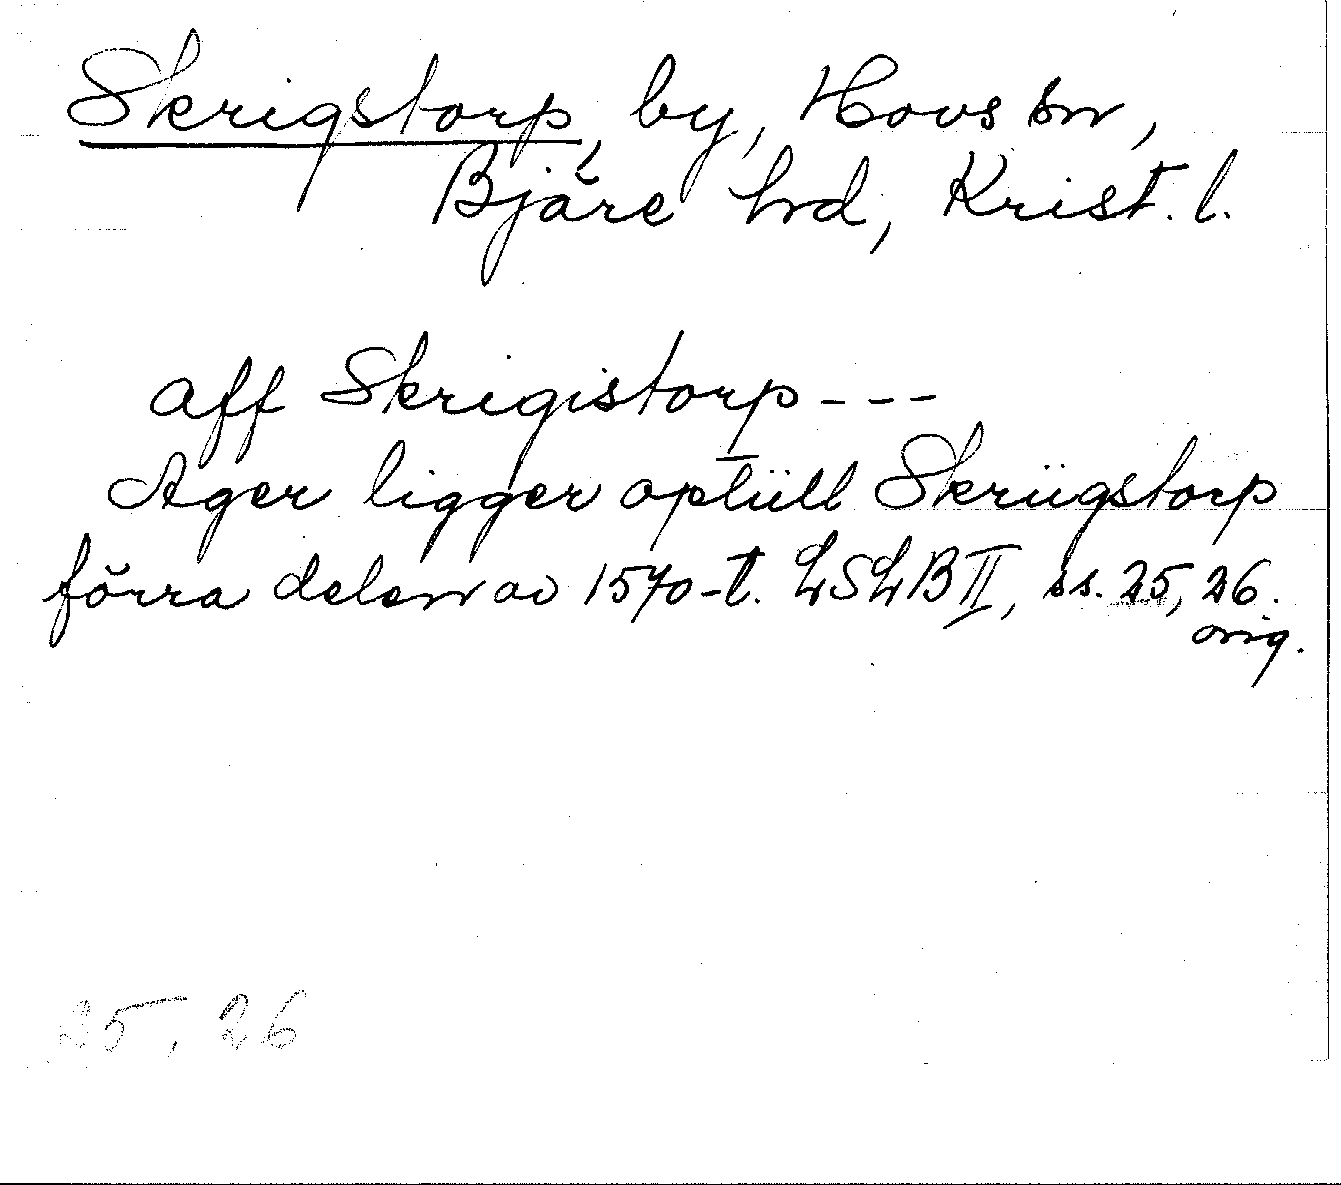 Skrigstorp, by, Hovs sn,
Bjäre hrd, Krist. l.
aff Skrigistorp - - -
Ager ligger optüll Skriigstorp
förra delen av 1570-t. LSLB II, ss. 25, 26.
orig.
25, 26